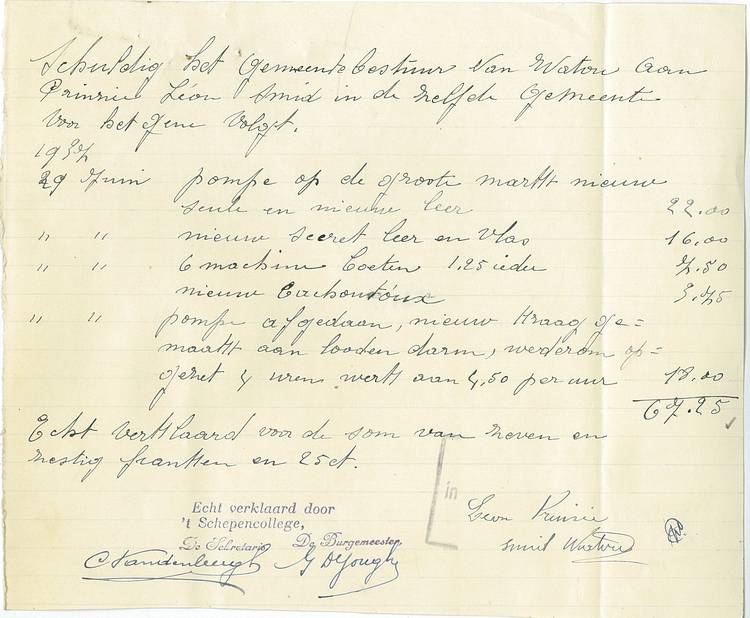 Schuldig het Gemeentebestuur van Watou aan
Prinzie Léon smid in de zelfde Gemeente
voor het gene volgt.
1937
29 Juin pompe op de groote markt nieuw
seule en nieuw leer 22.00
" " nieuw secret leer en vlas 16.00
" " 6 machine boeten 1.25 ieder 7.50
nieuw Cachoutoux 3.75
" " pompe afgedaan, nieuw kraag ge=
maakt aan looden darm, wederom op=
gezet 4 uren werk aan 4,50 per uur 18.00
67.25
Echt verklaard voor de som van zeven en
zestig frankken en 25 ct.
in
Echt verklaard door
't Schepencollege,
De Sekretaris De Burgemeester
Leon Prinzie
smid Watou
C Vandenbergh